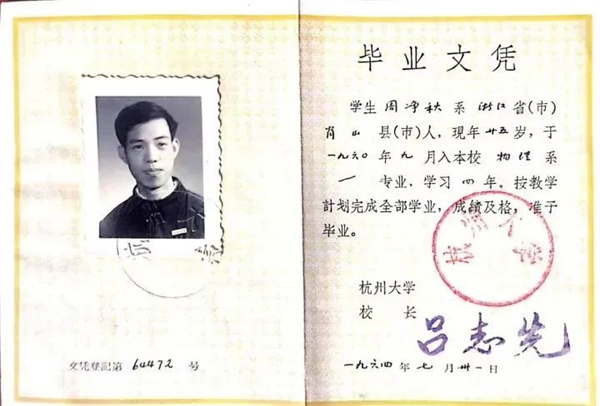 毕业文凭
学生周净秋系浙江省(市)
肖山县(市)人，现年廿五岁，于
一九六〇年九月入本校物理系
专业、学习四年。按教学
计划完成全部学业，成绩及格，准予
毕业。
杭州大学
校长
吕志先
一九六四年七月卅一日
杭州大学
文凭登记第64472号